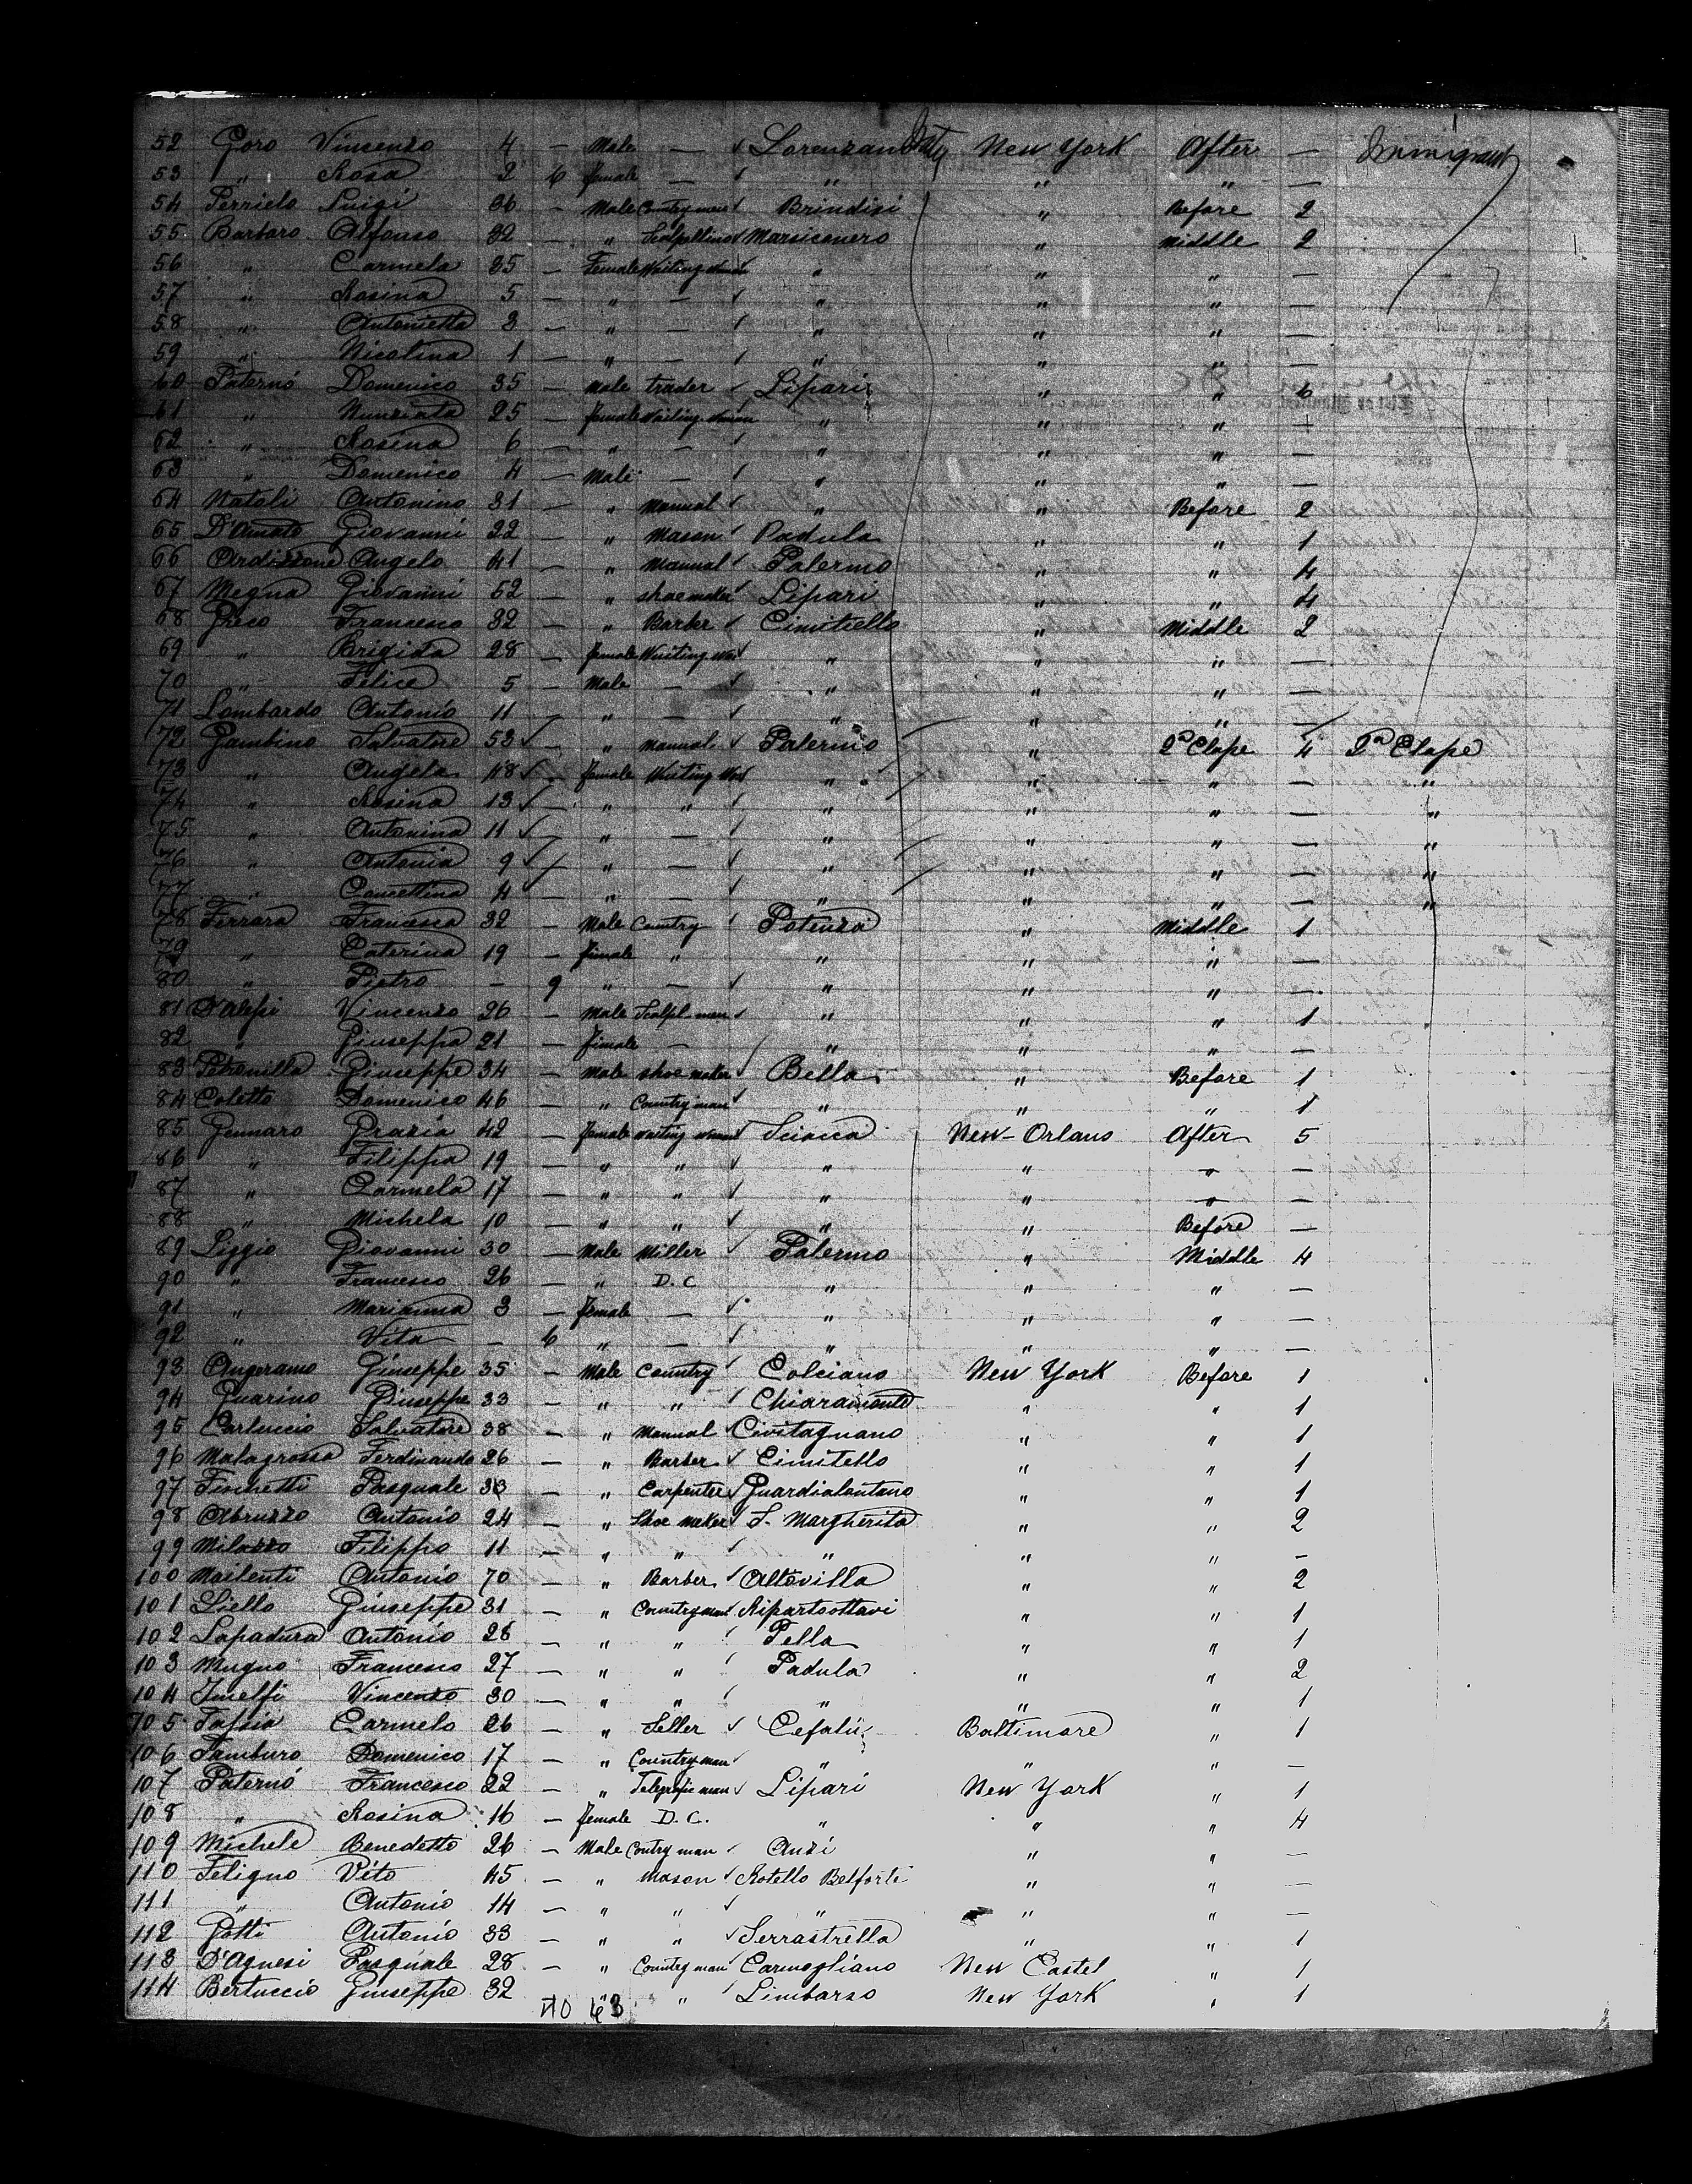 52 Goro Vincenzo 4 — Male — ✓ Lorenzano Italy New York After — Immigrant
53 " Rosa 2 6 female — ✓ " " " —
54 Perrielo Luigi 36 — Male Countryman ✓ Brindisi " Before 2
55 Barbaro Alfonso 32 — " Scalpellino ✓ Marsiconero " Middle 2
56 " Carmela 35 — Female Waiting " " " —
57 " Rosina 5 — " — ✓ " " " —
58 " Antonietta 3 — " — ✓ " " " —
59 " Nicolina 1 — " — ✓ " " " —
60 Paternó Domenico 35 — Male trader ✓ Lipari " " 6
61 " Nunziata 25 — female Waiting " " " —
62 " Rosina 6 — " — ✓ " " " —
63 " Domenico 4 — Male — ✓ " " " —
64 Natoli Antonino 31 — " Manual ✓ " " Before 2
65 D'Amato Giovanni 22 — " Mason ✓ Padula " " 1
66 Ardizzone Angelo 41 — " Manual ✓ Palermo " " 4
67 Megna Giovanni 52 — " shoemaker ✓ Lipari " " 4
68 Greco Francesco 32 — " Barber ✓ Cimitiello " Middle 2
69 " Brigida 28 — female Waiting ✓ " " " —
70 " Felice 5 — Male — ✓ " " " —
71 Lombardo Antonio 11 — " — ✓ " " " —
72 Gambino Salvatore 53 ✓ — " Manual ✓ Palermo " 2a Clape 4 2a Clape
73 " Angela 48 ✓ — female Waiting ✓ " " " — "
74 " Rosina 13 ✓ — " " ✓ " " " — "
75 " Antonina 11 ✓ — " — ✓ " " " — "
76 " Antonia 9 ✓ — " — ✓ " " " — "
77 " Concettina 4 ✓ — " — ✓ " " " — "
78 Ferrara Francesco 32 — Male Country ✓ Potenza " Middle 1
79 " Caterina 19 — female " " " " —
80 " Pietro — 9 " — ✓ " " " —
81 Vincenzo 26 — Male Scalpl-man ✓ " " " 1
82 " Giuseppa 21 — female — " " " —
83 Petronilla Giuseppe 34 — Male shoe maker ✓ Bella " Before 1
84 Coletto Domenico 46 — " Country man ✓ " " " 1
85 Gennaro Grazia 42 — female waiting ✓ Sciacca New-Orlans After 5
86 " Filippa 19 — " " ✓ " " " —
87 " Carmela 17 — " " ✓ " " " —
88 " Michela 10 — " " ✓ " " Before —
89 Liggio Giovanni 30 — Male Miller ✓ Palermo " Middle 4
90 " Francesco 26 — " D.C " " " —
91 " Marianna 3 — female — ✓ " " " —
92 " Vita — 6 " — ✓ " " " —
93 Angeramo Giuseppe 35 — Male Country ✓ Colciano New York Before 1
94 Guarino Giuseppe 33 — " " ✓ Chiaramonte " " 1
95 Carluccio Salvatore 38 — " Manual ✓ Civitagnano " " 1
96 Malagrossa Ferdinando 26 — " Barber ✓ Cimitello " " 1
97 Fischetti Pasquale 33 — " Carpenter ✓ Guardialontano " " 1
98 Abruzzo Antonio 24 — " Shoe maker ✓ S. Margherita " " 2
99 Milazzo Filippo 11 — " " ✓ " " " —
100 Mailenti Antonio 70 — " Barber ✓ Altovilla " " 2
101 Liello Giuseppe 31 — " Countryman ✓ Ripartsottavi " " 1
102 Lapadura Antonio 28 — " " ✓ Pella " " 1
103 Mugno Francesco 27 — " " ✓ Padula " " 2
104 Imelfi Vincenzo 30 — " " ✓ " " " 1
105 Tapia Carmelo 26 — " Seller ✓ Cefalù Baltimore " 1
106 Tamburo Domenico 17 — " Countryman ✓ " " " —
107 Paternó Francesco 22 — " Telegrafic man ✓ Lipari New York " 1
108 " Rosina 16 — female D.C. " " " 4
109 Michele Benedetto 26 — Male Contry man ✓ Anzi " " —
110 Feligno Vito 45 — " Mason ✓ Rotello Belforti " " —
111 " Antonio 14 — " " ✓ " " " —
112 Gatti Antonio 33 — " " ✓ Serrastrella " " 1
113 D'Agnesi Pasquale 28 — " Country man ✓ Carmogliano New Castel " 1
114 Bertuccio Giuseppe 32 " " ✓ Limbarzo New York " 1
63